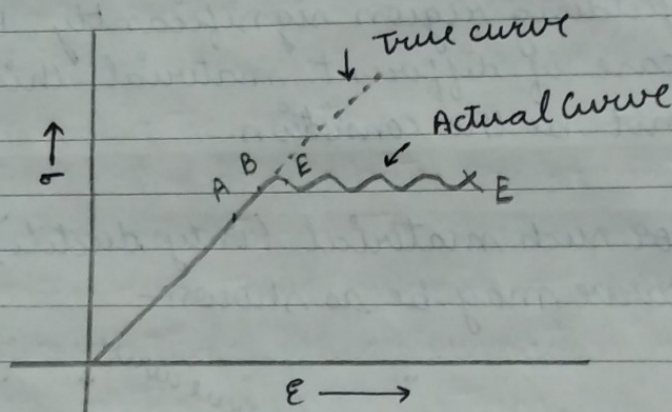 True curve
Actual Curve
σ
A
B
E
E
ε